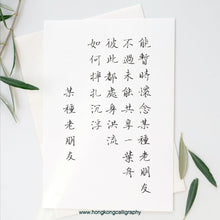 能暫時懷念某種老朋友
不過未能共享一葉舟
彼此都處身洪流
如何掙扎沉浮
某種老朋友
www.hongkongcalligraphy